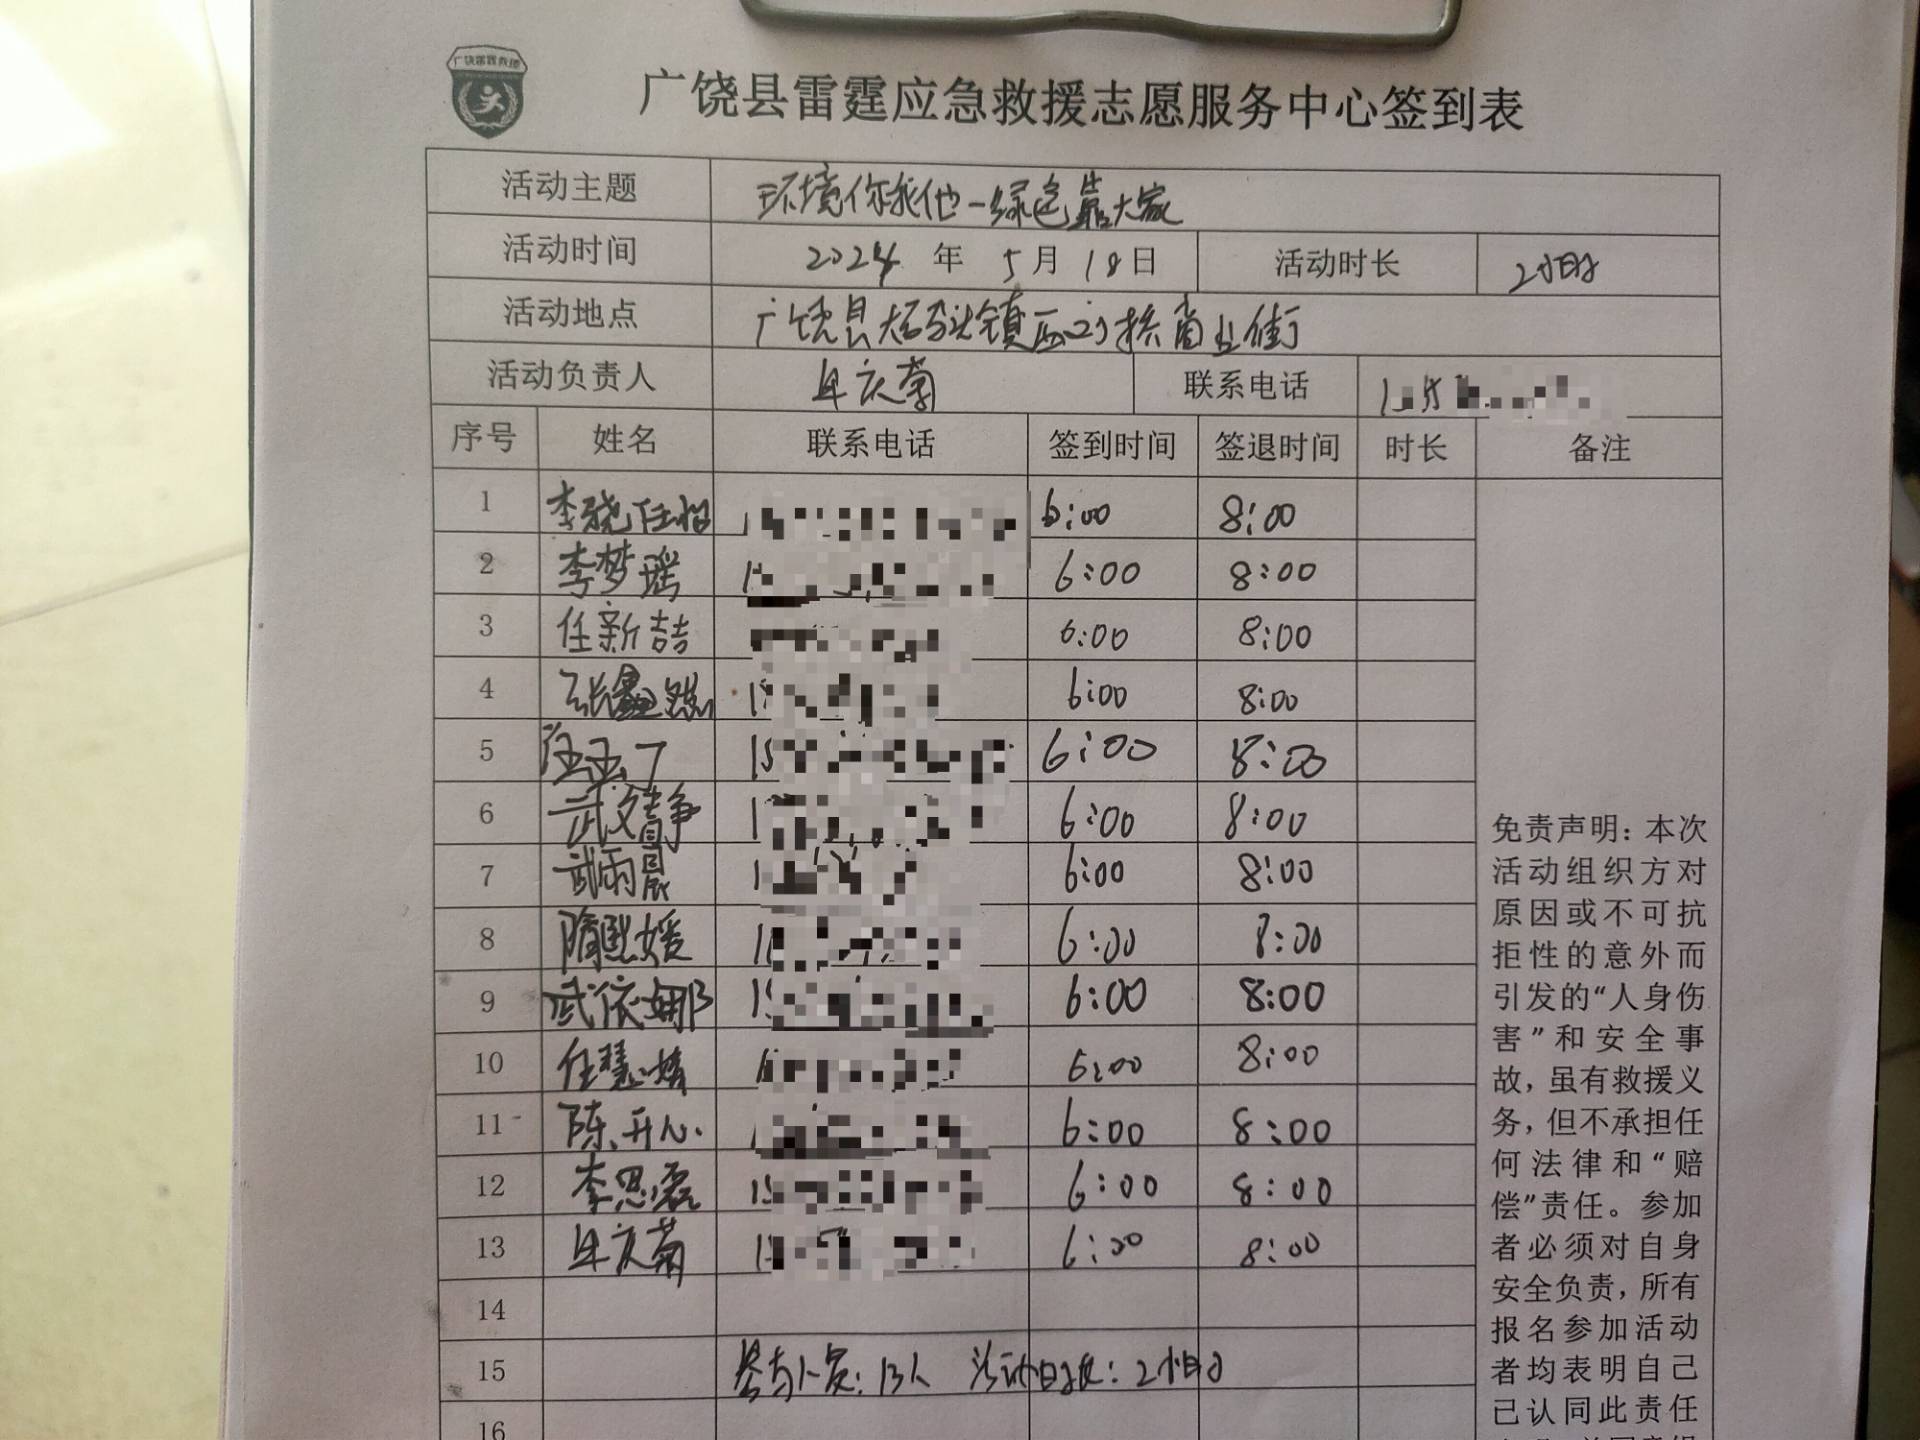 广饶雷霆救援
广饶县雷霆应急救援志愿服务中心签到表
活动主题 环境你我他一绿色靠大家
活动时间 2024 年 5 月 18 日 活动时长 2小时
活动地点 广饶县大码头镇西刘桥商业街
活动负责人 庆菊 联系电话
序号 姓名 联系电话 签到时间 签退时间 时长 备注
1 李晓任 6:00 8:00
2 李梦瑶 6:00 8:00
3 任新喆 6:00 8:00
4 张鑫 6:00 8:00
5 汪玉丁 6:00 8:00
6 武文静 6:00 8:00
7 武雨晨 6:00 8:00
8 隋熙媛 6:00 8:00
9 武依娜 6:00 8:00
10 任慧 6:00 8:00
11 陈开心 6:00 8:00
12 李思磊 6:00 8:00
13 庆菊 6:00 8:00
14
15 参与人员：13人 活动时长：2小时
16
免责声明：本次
活动组织方对
原因或不可抗
拒性的意外而
引发的“人身伤
害”和安全事
故，虽有救援义
务，但不承担任
何法律和“赔
偿”责任。参加
者必须对自身
安全负责，所有
报名参加活动
者均表明自己
已认同此责任